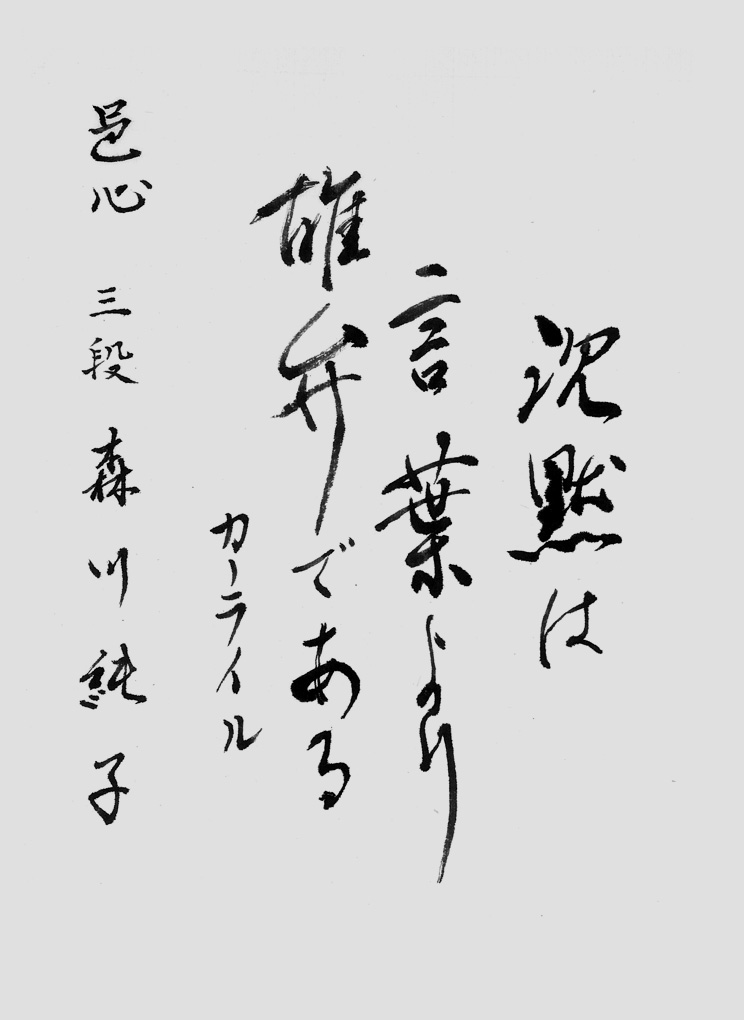 沈黙は
言葉より
雄弁である
カーライル
邑心 三段 森川純子